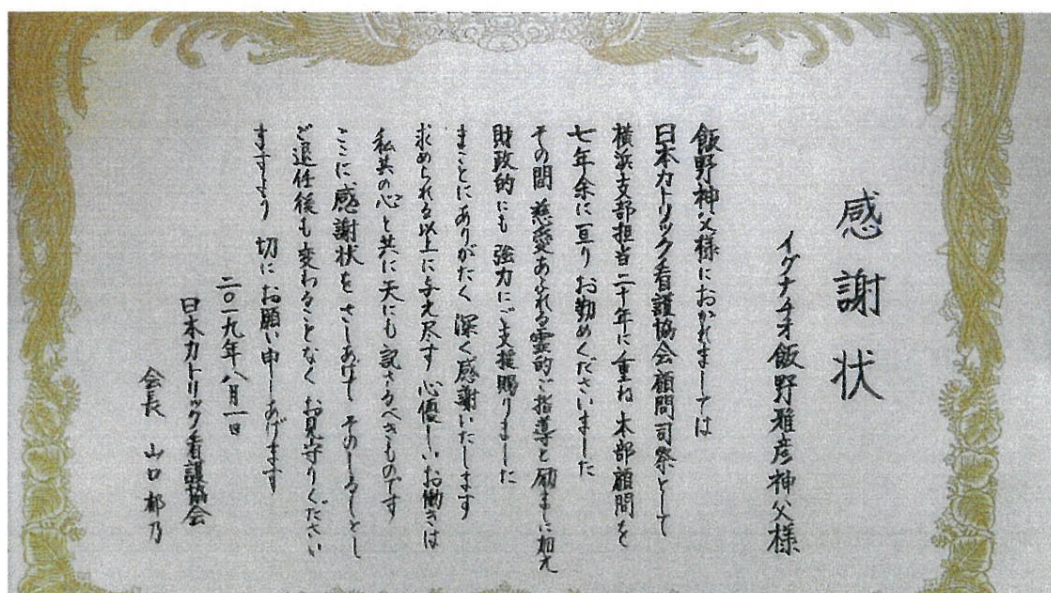 感謝状
イグナチオ飯野雅彦神父様
飯野神父様におかれましては
日本カトリック看護協会顧問司祭として
横浜支部担当二十年に重ね本部顧問を
七年余に亘りお勤めくださいました
その間 慈愛あふれる霊的ご指導と励ましに加え
財政的にも 強力にご支援賜りました
まことにありがたく 深く感謝いたします
求められる以上に与え尽す 心優しいお働きは
私共の心と共に天にも記さるべきものです
ここに感謝状を さしあげて そのしるしとし
ご退任後も変わることなく お見守りください
ますよう 切にお願い申しあげます
二〇一九年八月一日
日本カトリック看護協会
会長 山口都乃